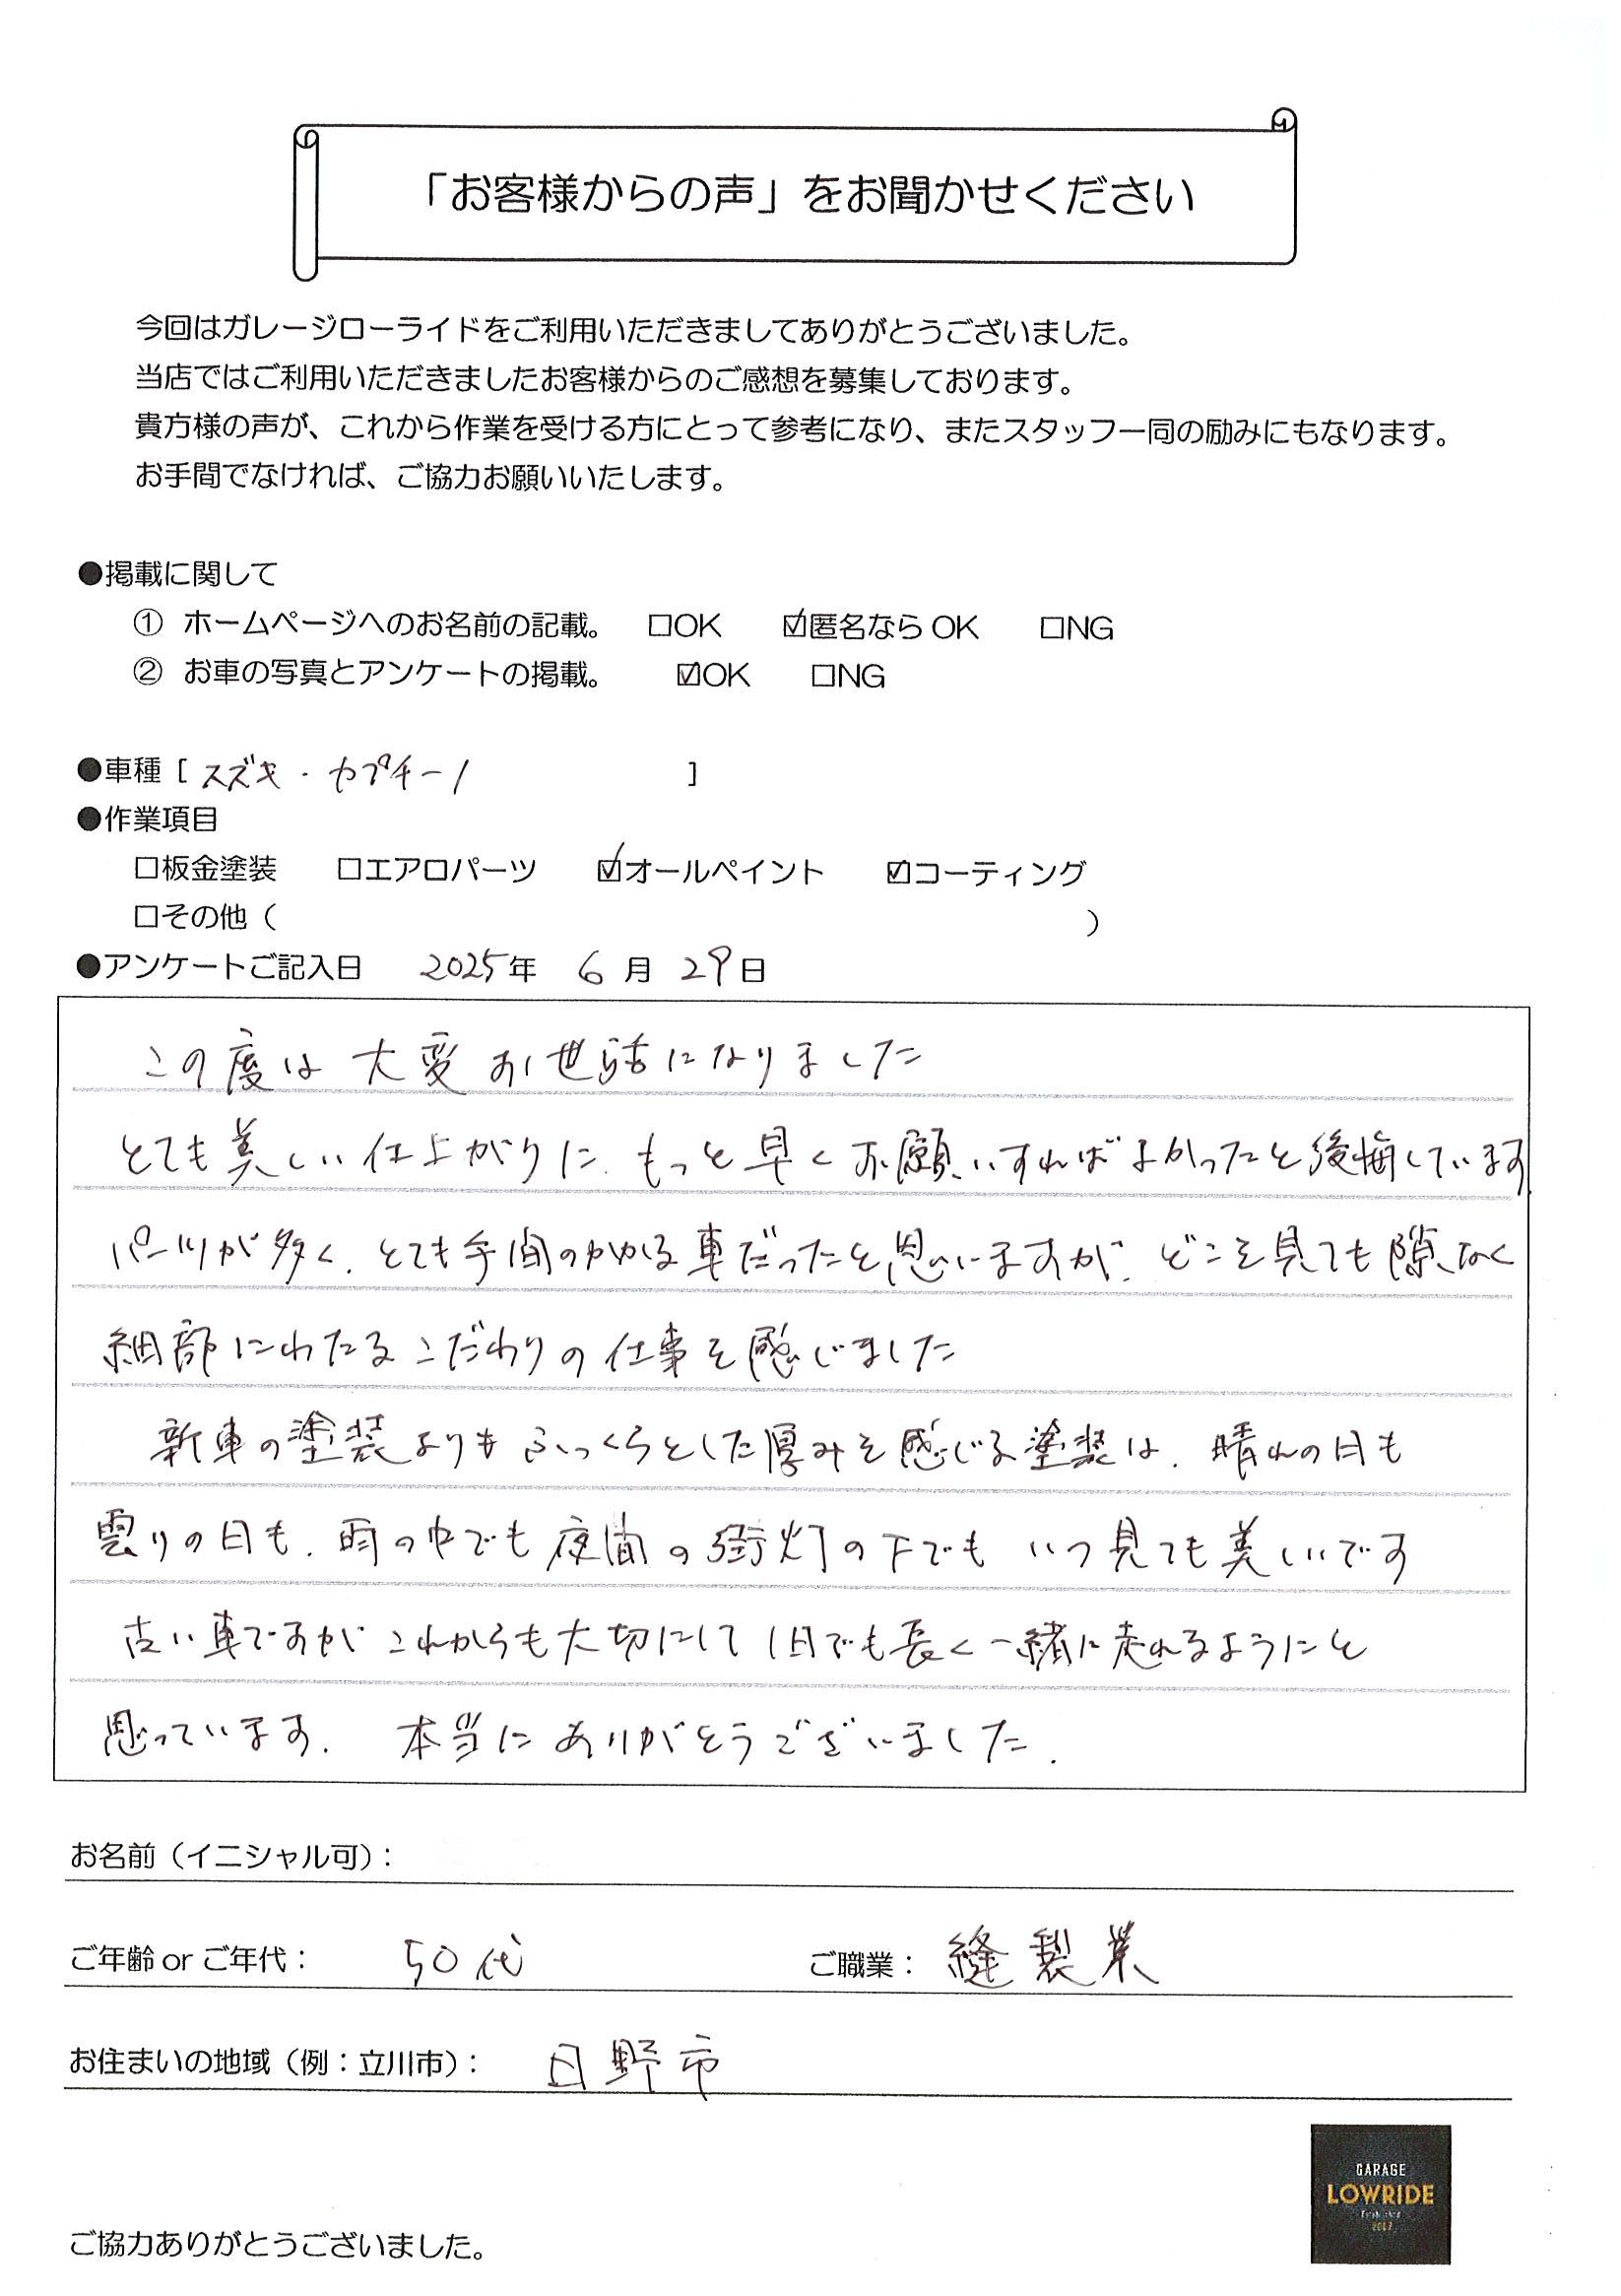 「お客様からの声」をお聞かせください
今回はガレージローライドをご利用いただきましてありがとうございました。
当店ではご利用いただきましたお客様からのご感想を募集しております。
貴方様の声が、これから作業を受ける方にとって参考になり、またスタッフ一同の励みにもなります。
お手間でなければ、ご協力お願いいたします。
●掲載に関して
① ホームページへのお名前の記載。 □OK ☑匿名ならOK □NG
② お車の写真とアンケートの掲載。 ☑OK □NG
●車種 [ スズキ・カプチーノ ]
●作業項目
□板金塗装 □エアロパーツ ☑オールペイント ☑コーティング
□その他（ ）
●アンケートご記入日 2025年 6月 29日
この度は大変お世話になりました
とても美しい仕上がりに、もっと早くお願いすればよかったと後悔しています
パーツが多く、とても手間のかかる車だったと思いますが、どこを見ても隙なく
細部にわたるこだわりの仕事を感じました
新車の塗装よりもふっくらとした厚みを感じる塗装は、晴れの日も
雲りの日も、雨の中でも夜間の街灯の下でもいつ見ても美しいです
古い車ですがこれからも大切にして1日でも長く一緒に走れるようにと
思っています. 本当にありがとうございました.
お名前（イニシャル可）：
ご年齢 or ご年代： 50代 ご職業： 縫製業
お住まいの地域（例：立川市）： 日野市
GARAGE
LOWRIDE
Established
2017
ご協力ありがとうございました。